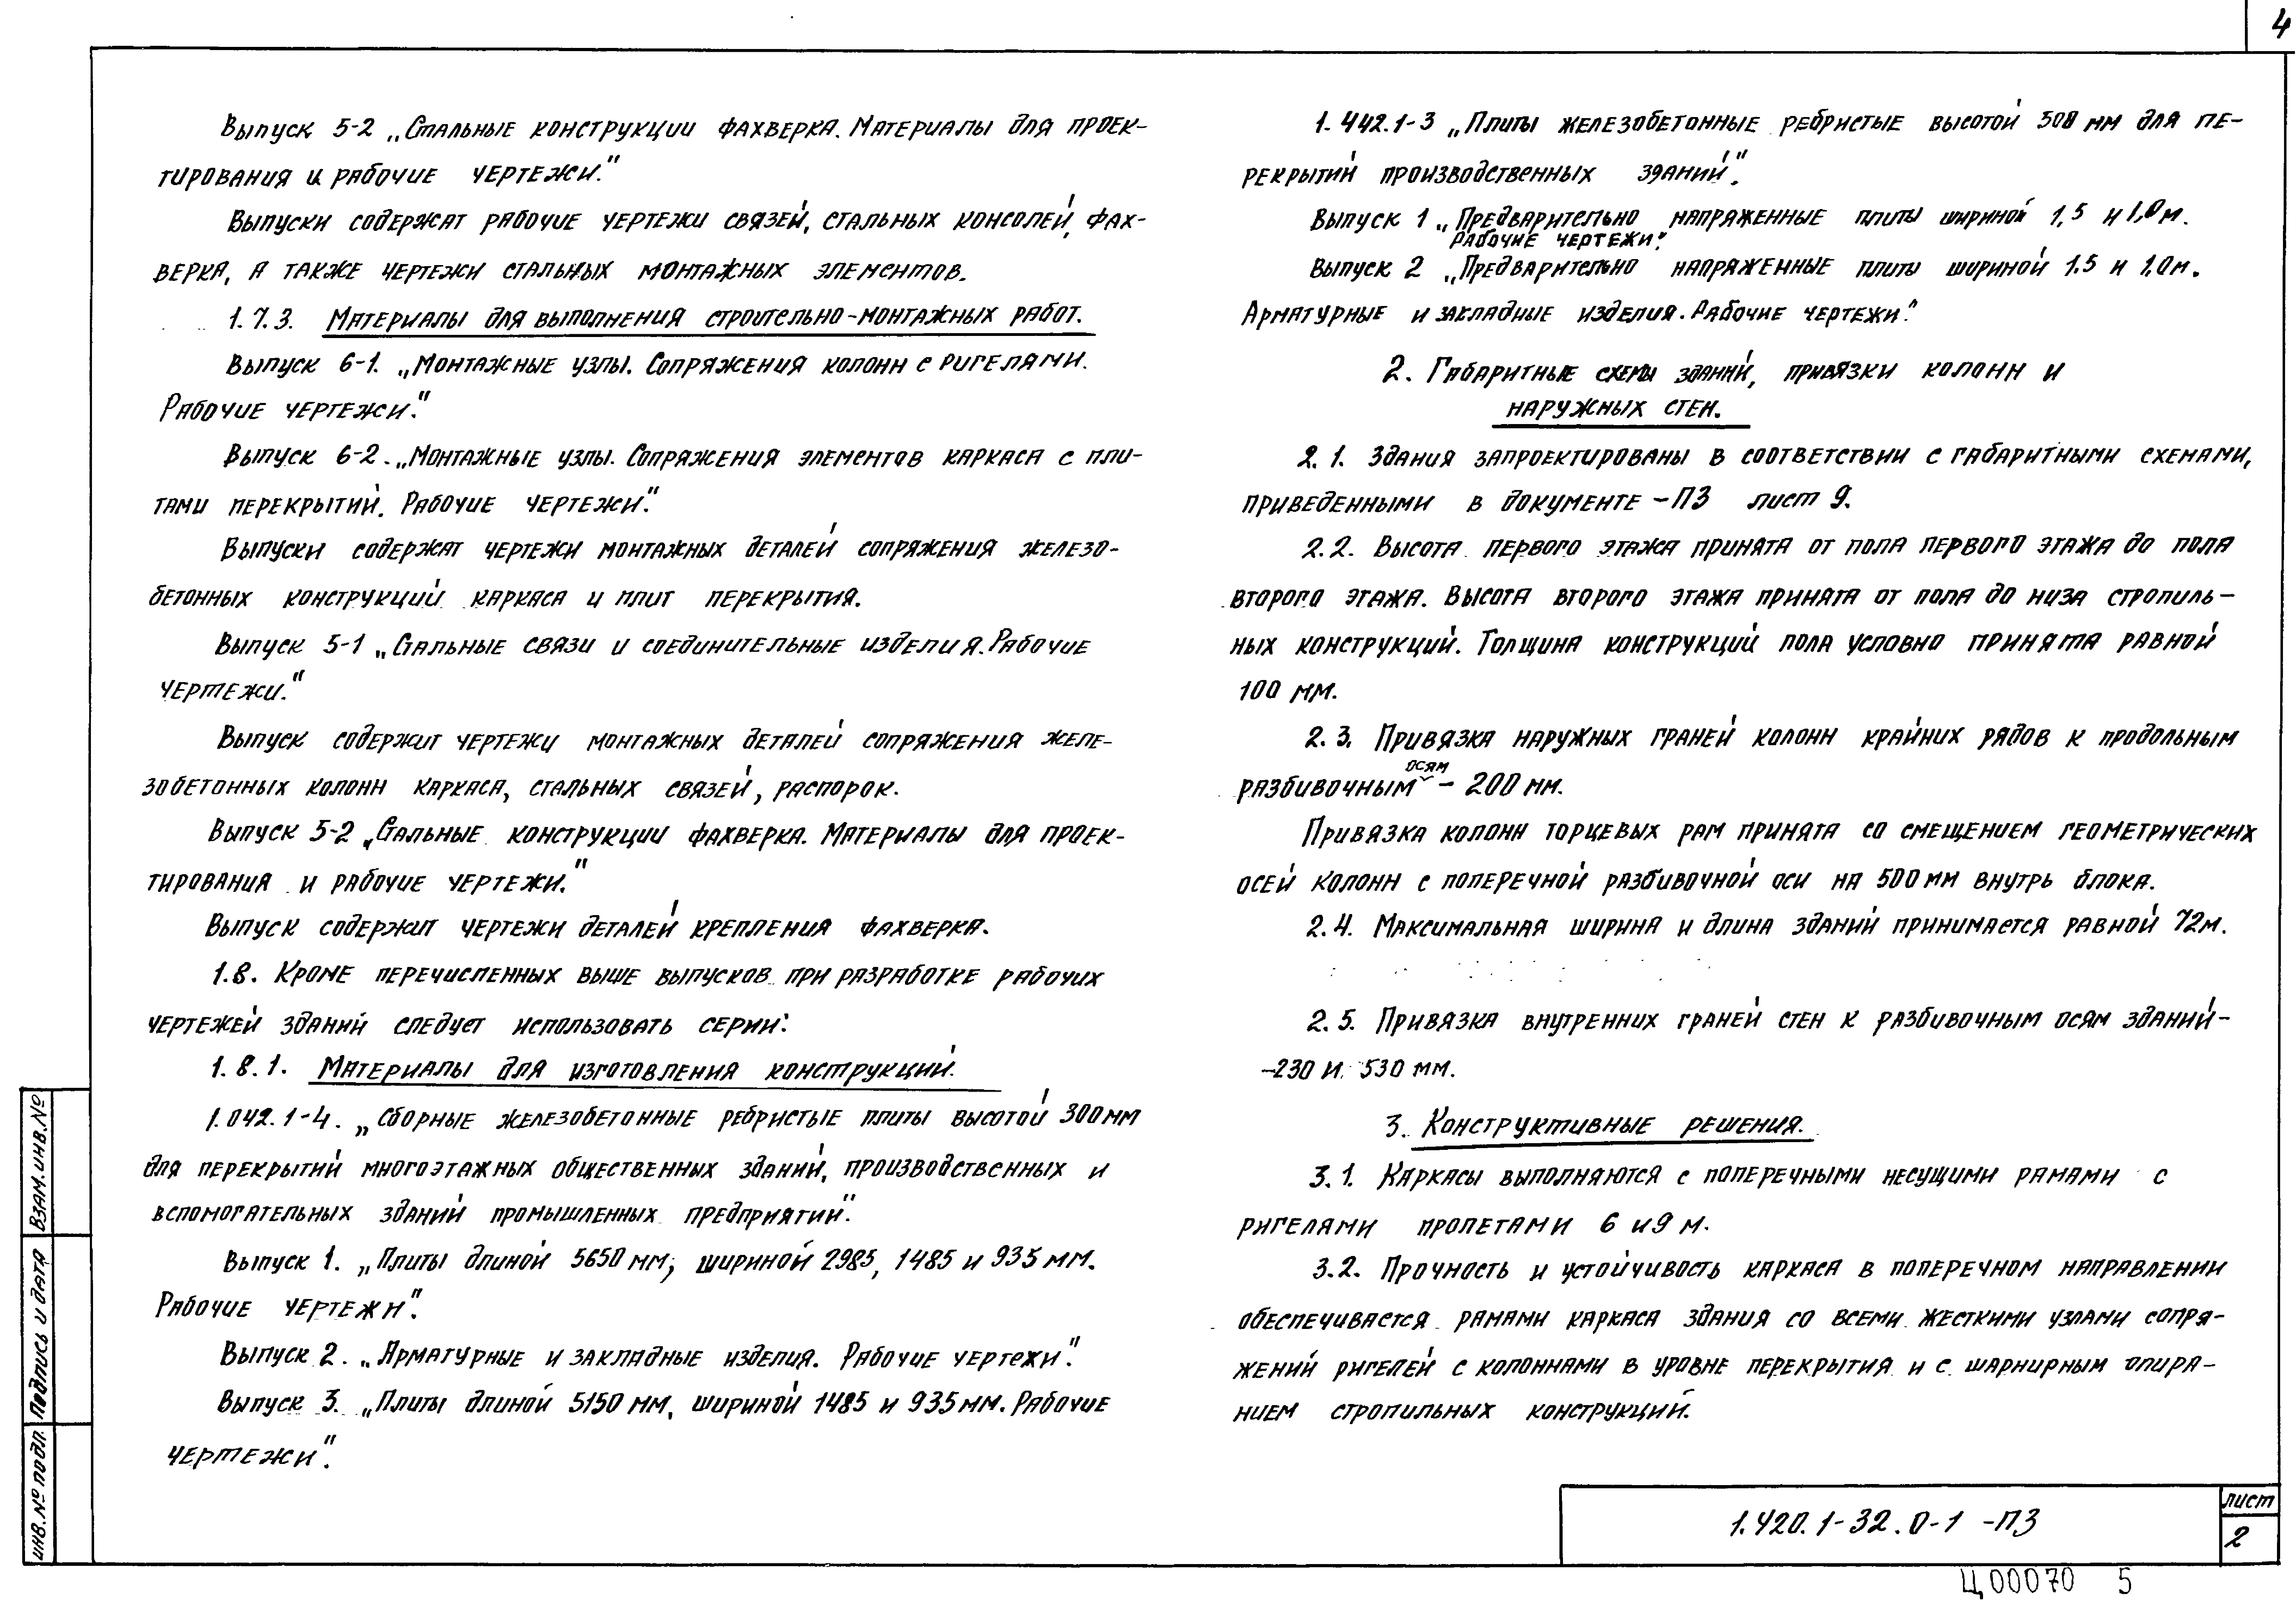 4
Выпуск 5-2 „Стальные конструкции фахверка. Материалы для проек-
тирования и рабочие чертежи."
Выпуски содержат рабочие чертежи связей, стальных консолей, фах-
верка, а также чертежи стальных монтажных элементов.
1.7.3. Материалы для выполнения строительно-монтажных работ.
Выпуск 6-1. „Монтажные узлы. Сопряжения колонн с ригелями.
Рабочие чертежи."
Выпуск 6-2. „Монтажные узлы. Сопряжения элементов каркаса с пли-
тами перекрытий. Рабочие чертежи."
Выпуски содержат чертежи монтажных деталей сопряжения железо-
бетонных конструкций каркаса и плит перекрытия.
Выпуск 5-1 „Стальные связи и соединительные изделия. Рабочие
чертежи."
Выпуск содержит чертежи монтажных деталей сопряжения желе-
зобетонных колонн каркаса, стальных связей, распорок.
Выпуск 5-2 „Стальные конструкции фахверка. Материалы для проек-
тирования и рабочие чертежи."
Выпуск содержит чертежи деталей крепления фахверка.
1.8. Кроме перечисленных выше выпусков при разработке рабочих
чертежей зданий следует использовать серии:
1.8.1. Материалы для изготовления конструкций.
1.042.1-4. „Сборные железобетонные ребристые плиты высотой 300мм
для перекрытий многоэтажных общественных зданий, производственных и
вспомогательных зданий промышленных предприятий".
Выпуск 1. „Плиты длиной 5650 мм; шириной 2985, 1485 и 935 мм.
Рабочие чертежи".
Выпуск 2. „Арматурные и закладные изделия. Рабочие чертежи".
Выпуск 3. „Плиты длиной 5150 мм, шириной 1485 и 935 мм. Рабочие
чертежи".
1.442.1-3 „Плиты железобетонные ребристые высотой 500 мм для пе-
рекрытий производственных зданий".
Выпуск 1 „Предварительно напряженные плиты шириной 1,5 и 1,0м.
Рабочие чертежи".
Выпуск 2 „Предварительно напряженные плиты шириной 1.5 и 1,0м.
Арматурные и закладные изделия. Рабочие чертежи."
2. Габаритные схемы зданий, привязки колонн и
наружных стен.
2.1. Здания запроектированы в соответствии с габаритными схемами,
приведенными в документе -ПЗ лист 9.
2.2. Высота первого этажа принята от пола первого этажа до пола
второго этажа. Высота второго этажа принята от пола до низа стропиль-
ных конструкций. Толщина конструкций пола условно принята равной
100 мм.
2.3. Привязка наружных граней колонн крайних рядов к продольным
разбивочным осям - 200 мм.
Привязка колонн торцевых рам принята со смещением геометрических
осей колонн с поперечной разбивочной оси на 500 мм внутрь блока.
2.4. Максимальная ширина и длина зданий принимается равной 72м.
2.5. Привязка внутренних граней стен к разбивочным осям зданий-
-230 и 530 мм.
3. Конструктивные решения.
3.1. Каркасы выполняются с поперечными несущими рамами с
ригелями пролетами 6 и 9 м.
3.2. Прочность и устойчивость каркаса в поперечном направлении
обеспечивается рамами каркаса здания со всеми жесткими узлами сопря-
жений ригелей с колоннами в уровне перекрытия и с шарнирным опира-
нием стропильных конструкций.
Инв.№ подл. Подпись и дата Взам.инв.№
1.420.1-32.0-1 -ПЗ
лист
2
Ц00070 5